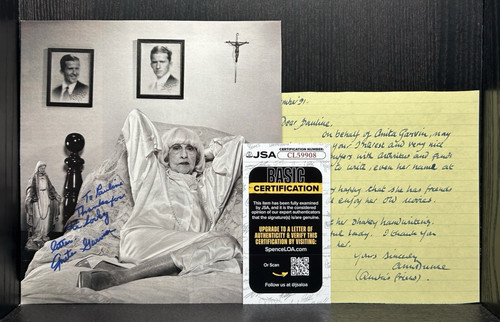 To Pauline
Thank you for
later.
Anita Garvin
JSA
CERTIFICATION NUMBER
CL59908
BASIC
CERTIFICATION
This item has been fully examined
by JSA, and it is the considered
opinion of our expert authenticators
that the signature(s) is/are genuine.
UPGRADE TO A LETTER OF
AUTHENTICITY & VERIFY THIS
CERTIFICATION BY VISITING:
SpenceLOA.com
Or Scan
Follow us at @jsaloa
Dear Pauline
On behalf of Anita Garvin, may
your interest and very nice
suffers with Arthritis and finds
to write, even her name at
happy that she has friends
enjoy her old movies.
her shakey handwriting.
lady. I thank you
her.
Yours Sincerly
(Anita's friend).